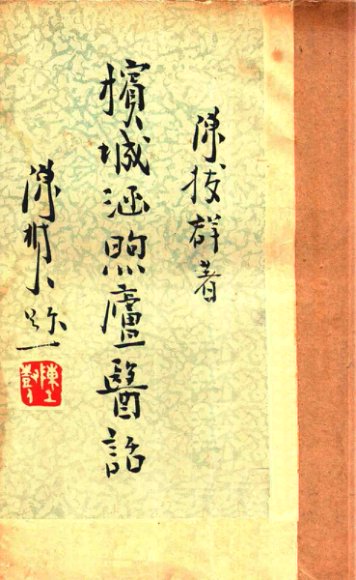 陳拔群著
檳城涵煦廬醫話
陳樹人題